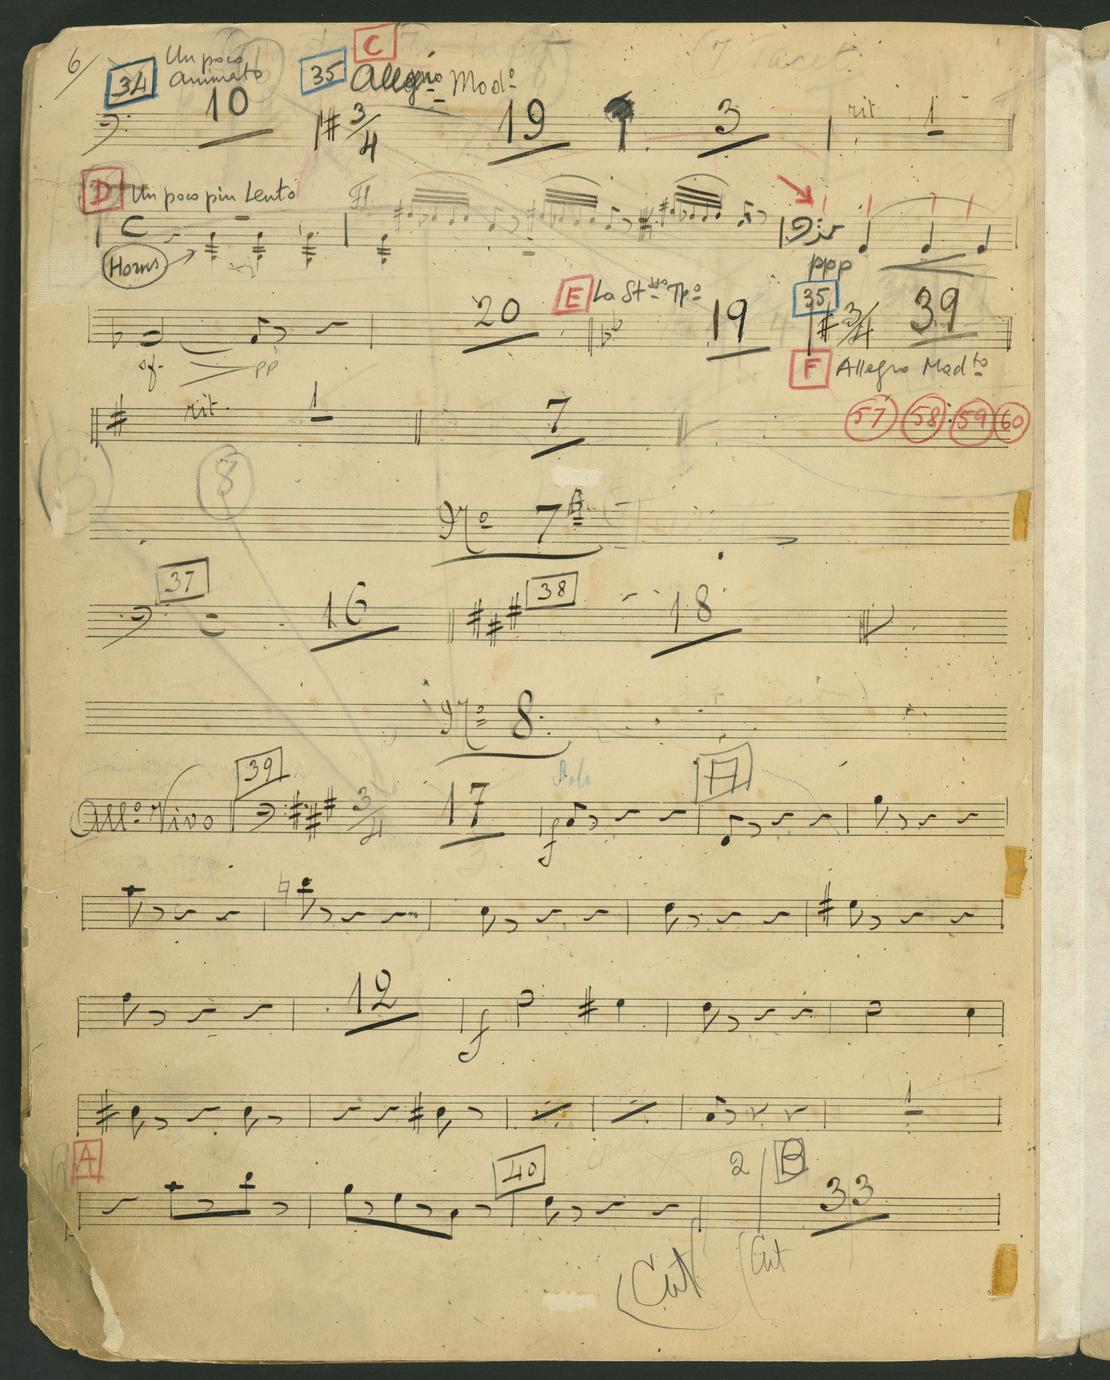 6/ 34 Un poco 35 C
Animato Allegro Modº
10 3/4 19 3 rit 1
7 Tacet
D Un poco piu Lento Fl.
C
Horns ppp
20 E 19 35 3/4 39
sf pp F Allegro Modto
rit. 1 7 57 58 59 60
8
Nº 7A
37 16 38 18
Nº 8.
39 A
Allº Vivo 3/4 17 f
12 f
1
A 40 2 B 33
Cut Cut